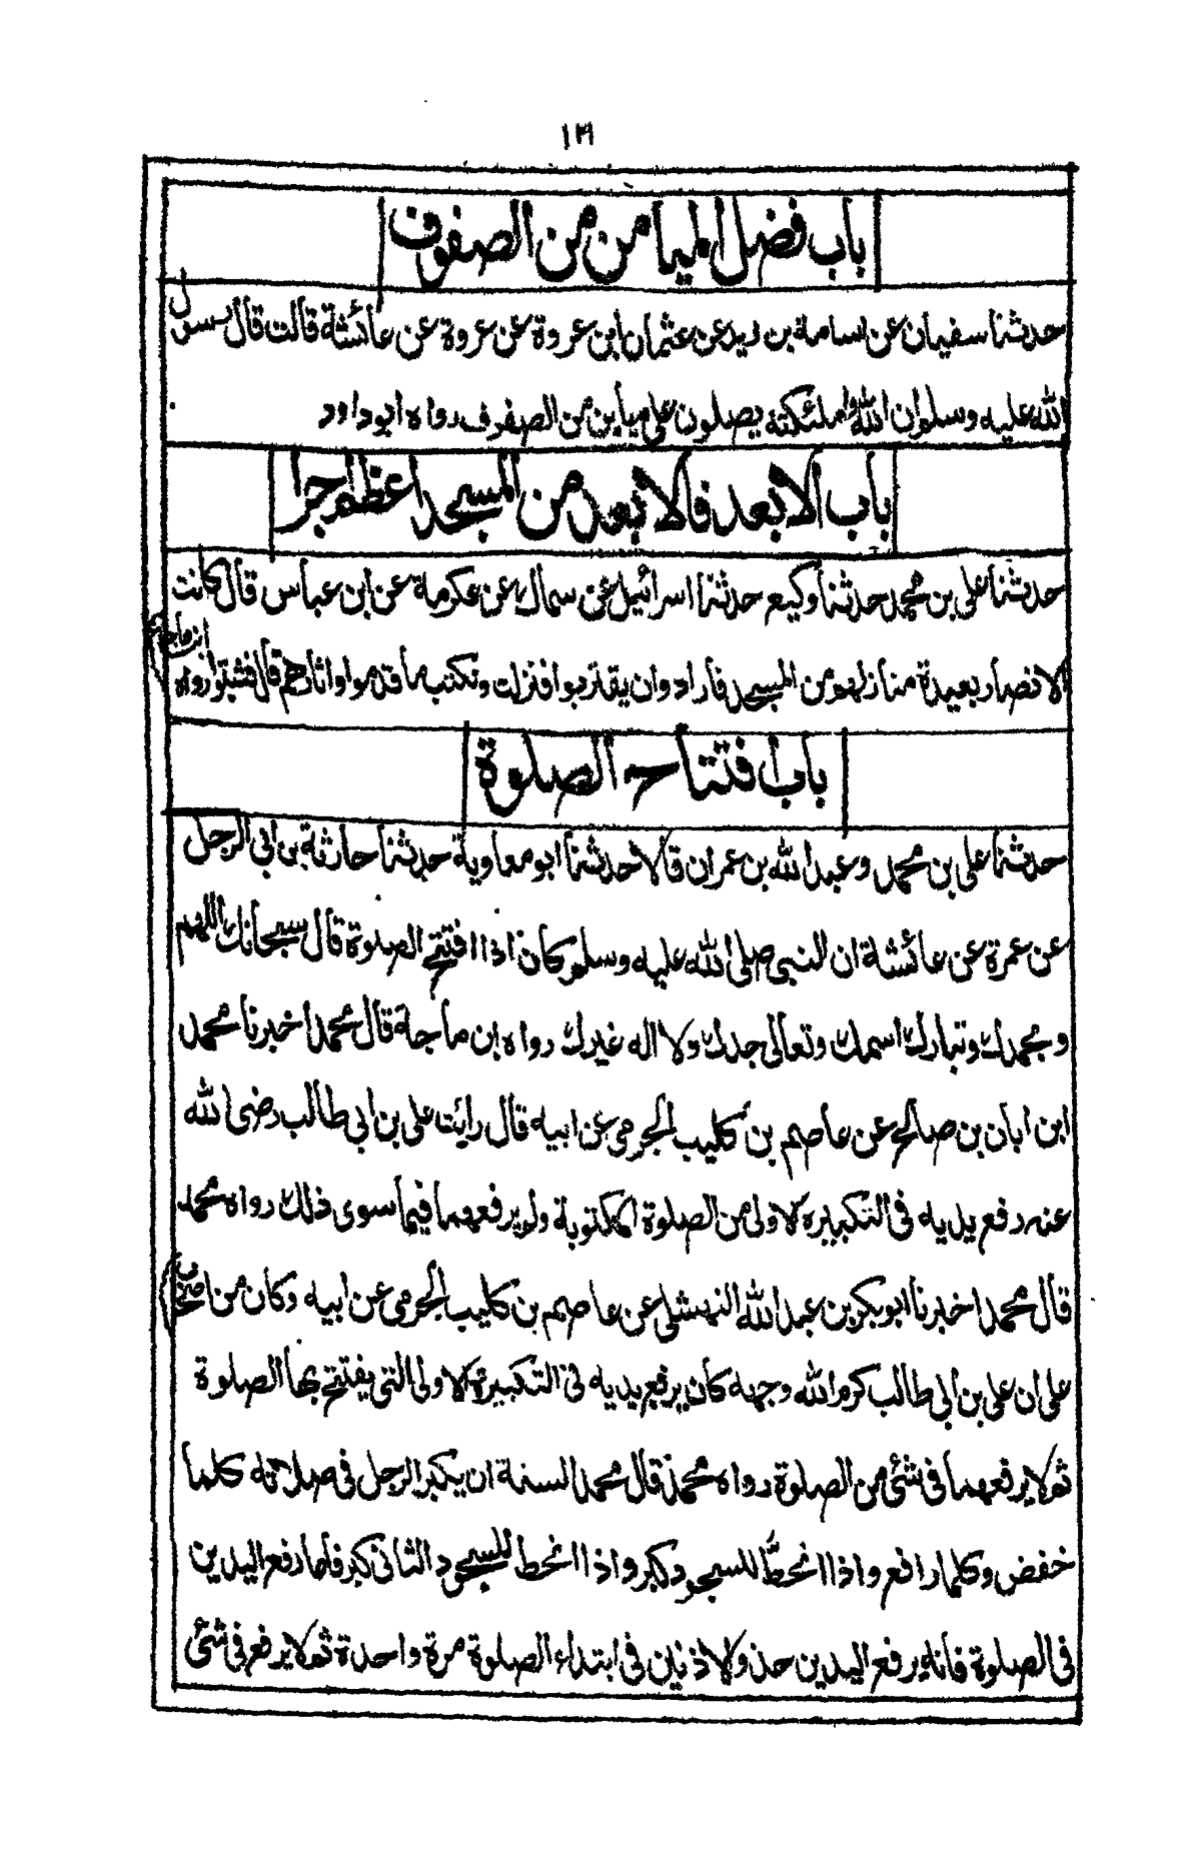 ١٣١
باب فضل الميامن من الصفوف
حدثنا سفيان عن اسامة بن زيد عن عثمان ابن عروة عن عروة عن عائشة قالت قال رسول
الله عليه وسلم ان الله وملئكته يصلون على ميامن من الصفوف رواه ابوداود
باب الابعد فالابعد من المسجد اعظم اجرا
حدثنا على بن محمد حدثنا وكيع حدثنا اسرائيل عن سماك عن عكرمة عن ابن عباس قال كانت
الانصار بعيدة منازلهم من المسجد فارادوا ان يقتربوا فنزلت ونكتب ما قدموا واثارهم قال فثبتوا رواه
ابن ماجة
باب افتتاح الصلوة
حدثنا على بن محمد وعبد الله بن عمران قالا حدثنا ابو معاوية حدثنا حارثة بن ابى الرجل
عن عمرة عن عائشة ان النبى صلى الله عليه وسلم كان اذا افتتح الصلوة قال سبحانك اللهم
وبحمدك وتبارك اسمك وتعالى جدك ولا اله غيرك رواه ابن ماجة قال محمد اخبرنا محمد
ابن ابان بن صالح عن عاصم بن كليب الجرمى عن ابيه قال رائت على بن ابى طالب رضى الله
عنه رفع يديه فى التكبيرة الاولى من الصلوة المكتوبة ولم يرفعهما فيما سوى ذلك رواه محمد
قال محمد اخبرنا ابو بكر بن عبد الله النهشلى عن عاصم بن كليب الجرمى عن ابيه وكان من اصحاب
على ان على بن ابى طالب كرم الله وجهه كان يرفع يديه فى التكبيرة الاولى التى يفتتح بها الصلوة
ثم لا يرفعهما فى شئ من الصلوة رواه محمد قال محمد السنة ان يكبر الرجل فى صلاته كلما
خفض وكلما رافع واذا انحطّ للسجود كبر واذا انحط للسجود الثانى كبر فاما رفع اليدين
فى الصلوة فانه يرفع اليدين حذو الاذنين فى ابتداء الصلوة مرة واحدة ثم لا يرفع فى شئ